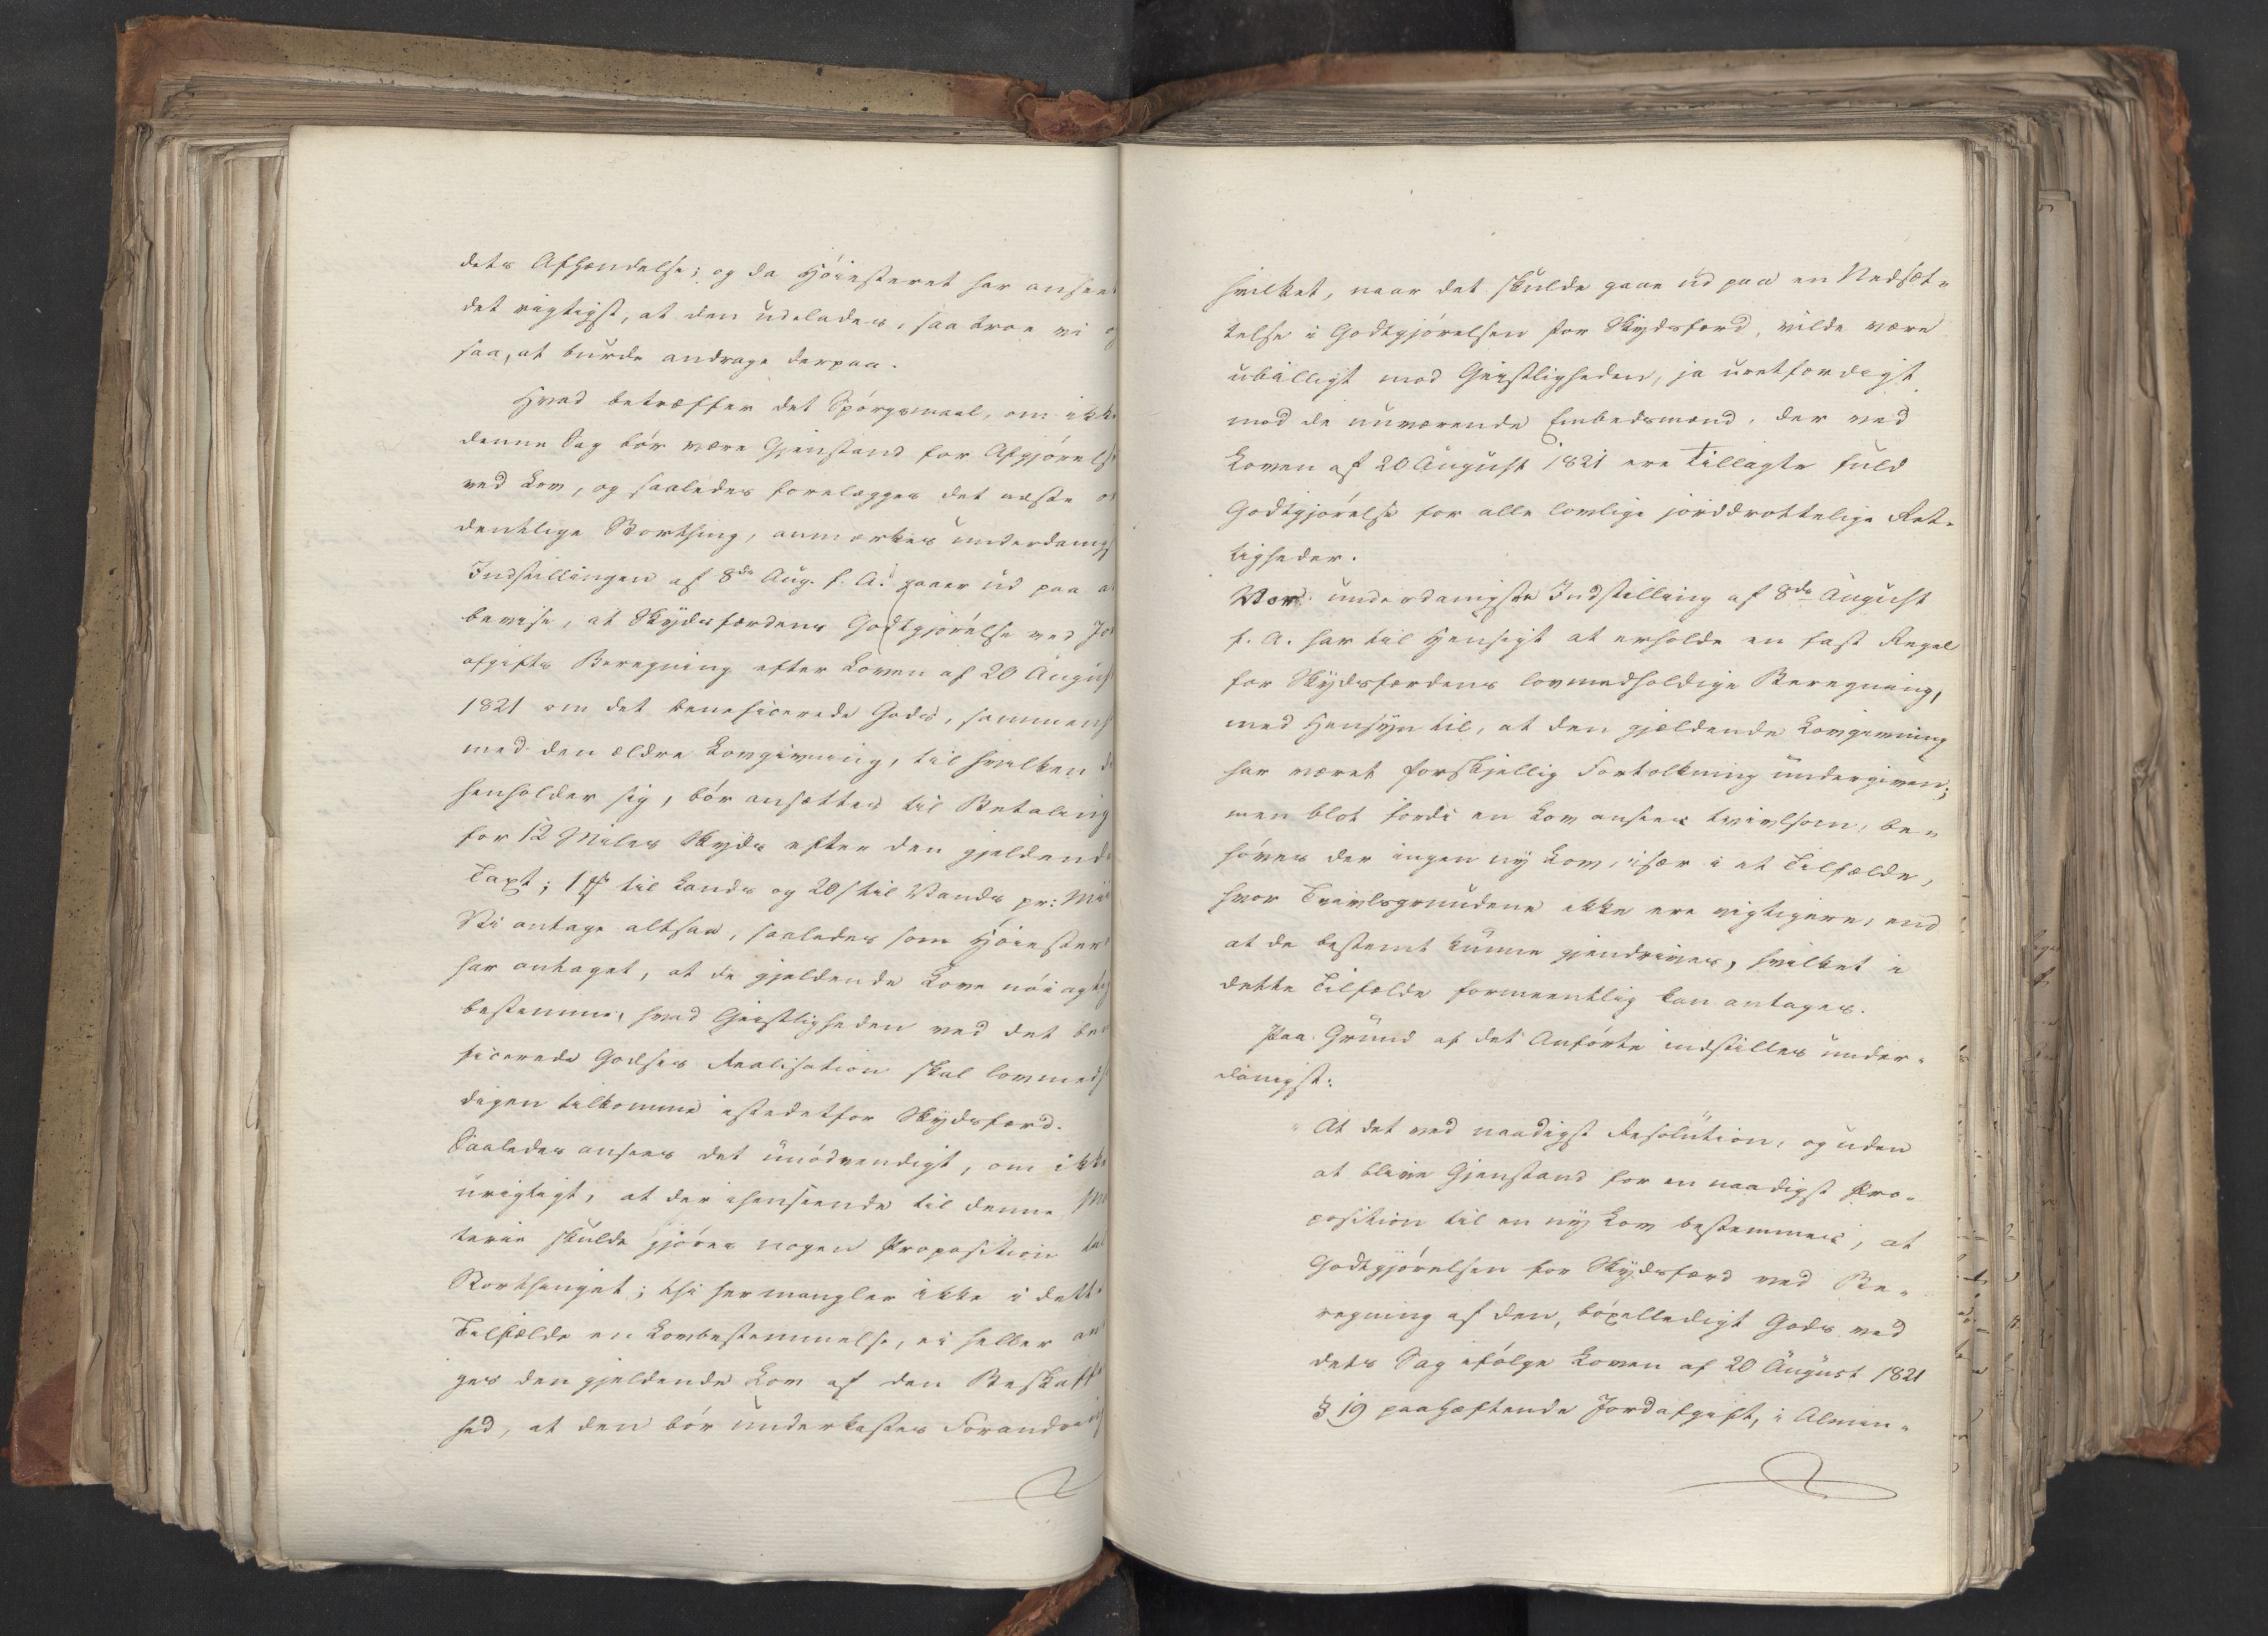 dets Afhændelse; og da Höiesteret har anseet
det rigtigst, at den udelades, saa troe vi og
saa, at burde andrage derpaa.
Hvad betræffer det Spörgsmaal, om ikke
denne Sag bör være Gjenstand for Afgjörelse
ved Lov, og saaledes forelægges det næste or
dentlige Storthing, anmærkes underdanigst
Indstillingen af 8de Aug. f. A. gaaer ud paa at
bevise, at Skydsfærdens Godtgjörelse ved Jord
afgifts Beregning efter Loven af 20 August
1821 om det beneficerede Gods, sammenh
med den ældre Lovgivning, til hvilken de
henholder sig, bör ansættes til Betaling
for 12 Miles Skyds efter den gjeldende
Taxt; 1 ort til Lands og 20 s til Vands pr: Miil
Vi antage altsaa, saaledes som Höiesteret
har antaget, at de gjeldende Love nöiagtig
bestemme, hvad Geistligheden ved det bene
ficerede Godses Realisation skal lovmedhol
digen tilkomme istedetfor Skydsfærd.
Saaledes ansees det unödvendigt, om ikke
urigtigt, at der ihenseende til denne Ma
terie skulde gjöres nogen Proposition til
Storthinget; thi her mangler ikke i dette
Tilfælde en Lovbestemmelse, ei heller an
ges den gjeldende Lov af den Beskaffen
hed, at den bör underkastes Forandring
hvilket, naar det skulde gaae ud paa en Nedsæt-
telse i Godtgjörelsen for Skydsfærd, vilde være
ubilligt mod Geistligheden, ja uretfærdigt
mod de nuværende Embedsmænd, der ved
Loven af 20 August 1821 ere tillagte fuld
Godtgjörelse for alle lovlige jorddrottelige Ret-
tigheder.
Vor underdanigste Indstilling af 8de August
f. A. har til Hensigt at erholde en fast Regel
for Skydsfærdens lovmedholdige Beregning,
med Hensyn til, at den gjældende Lovgivning
har været forskjellig Fortolkning undergiven;
men blot fordi en Lov ansees tvivlsom, be-
höves der ingen ny Lov, især i et Tilfælde,
hvor Tvivlsgrundene ikke ere vigtigere, end
at de bestemt kunne gjendrives, hvilket i
dette Tilfælde formeentlig kan antages.
Paa Grund af det Anförte indstilles under-
danigst:
"At det ved naadigst Resolution, og uden
at blive Gjenstand for en naadigst Pro-
position til en ny Lov bestemmes, at
Godtgjörelsen for Skydsfærd ved Be-
regning af den, böxelledigt Gods ved
dets Sag ifölge Loven af 20 August 1821
§ 19 paahæftende Jordafgift, i Almin-